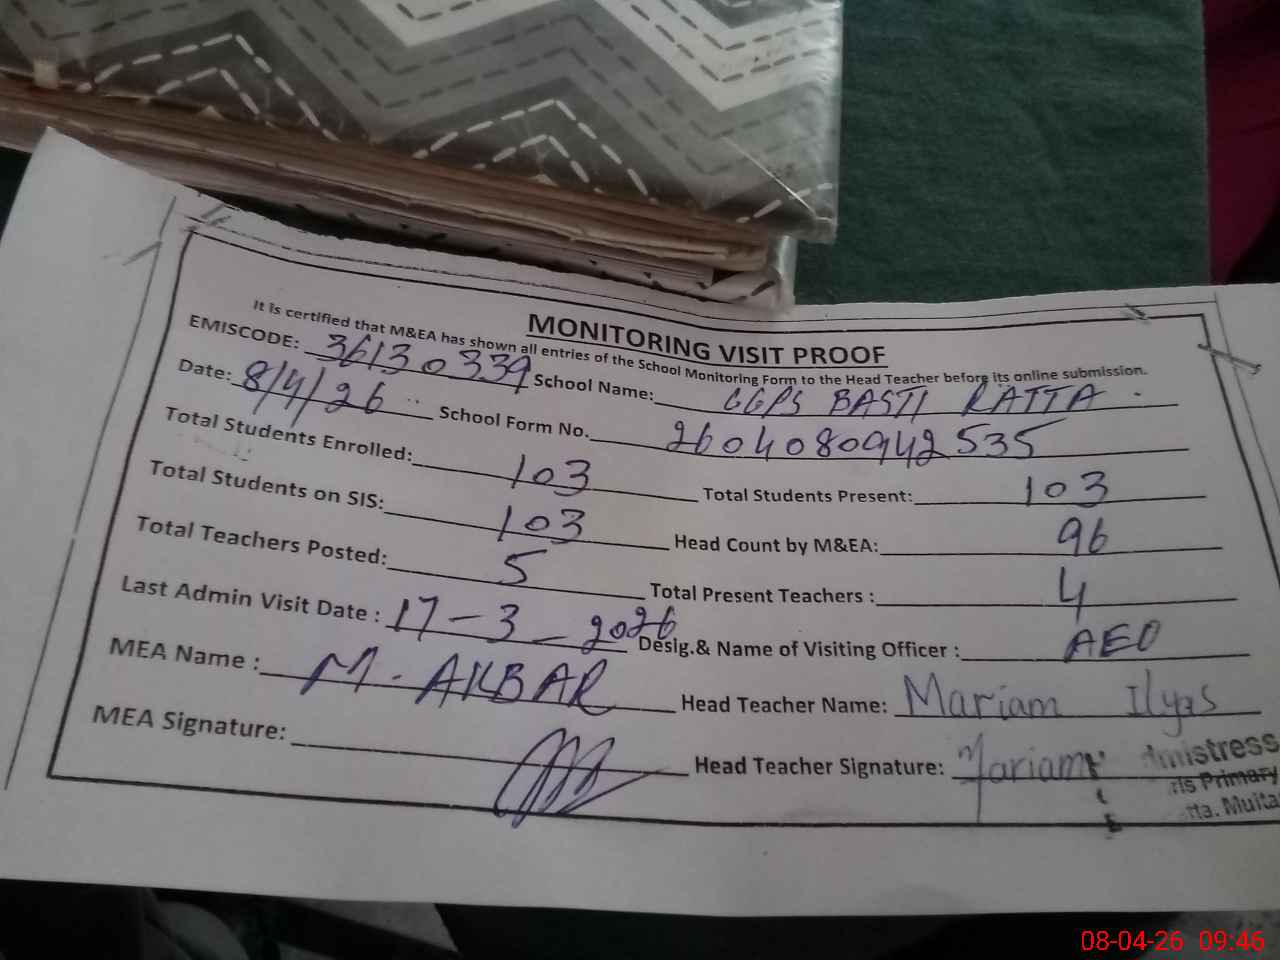 MONITORING VISIT PROOF
It is certified that M&EA has shown all entries of the School Monitoring Form to the Head Teacher before its online submission.
EMISCODE: 36130339 School Name: GGPS BASTI RATTA
Date: 8/4/26 School Form No. 2604080942535
Total Students Enrolled: 103 Total Students Present: 103
Total Students on SIS: 103 Head Count by M&EA: 96
Total Teachers Posted: 5 Total Present Teachers : 4
Last Admin Visit Date : 17-3-2026 Desig.& Name of Visiting Officer : AEO
MEA Name : M. AKBAR Head Teacher Name: Mariam Ilyas
MEA Signature: Head Teacher Signature: Mariam
mistress
rls Primary
tta. Multa
08-04-26 09:46